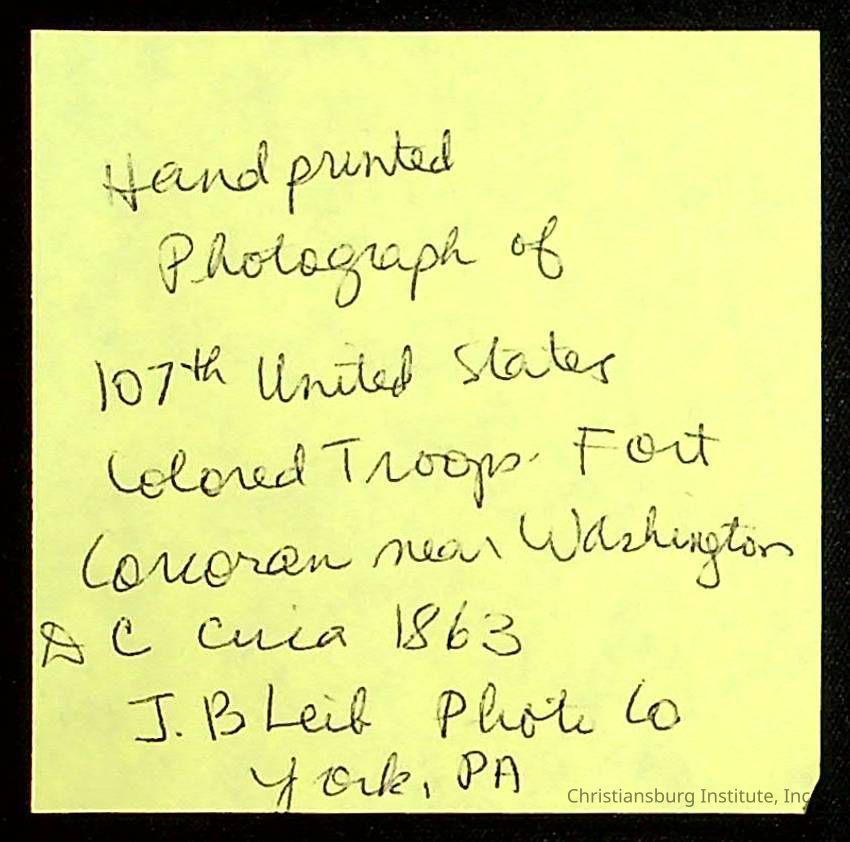 Hand printed
Photograph of
107th United States
Colored Troops. Fort
Corcoran near Washington
D C Circa 1863
J. B Leib Photo Co
York, PA
Christiansburg Institute, Inc